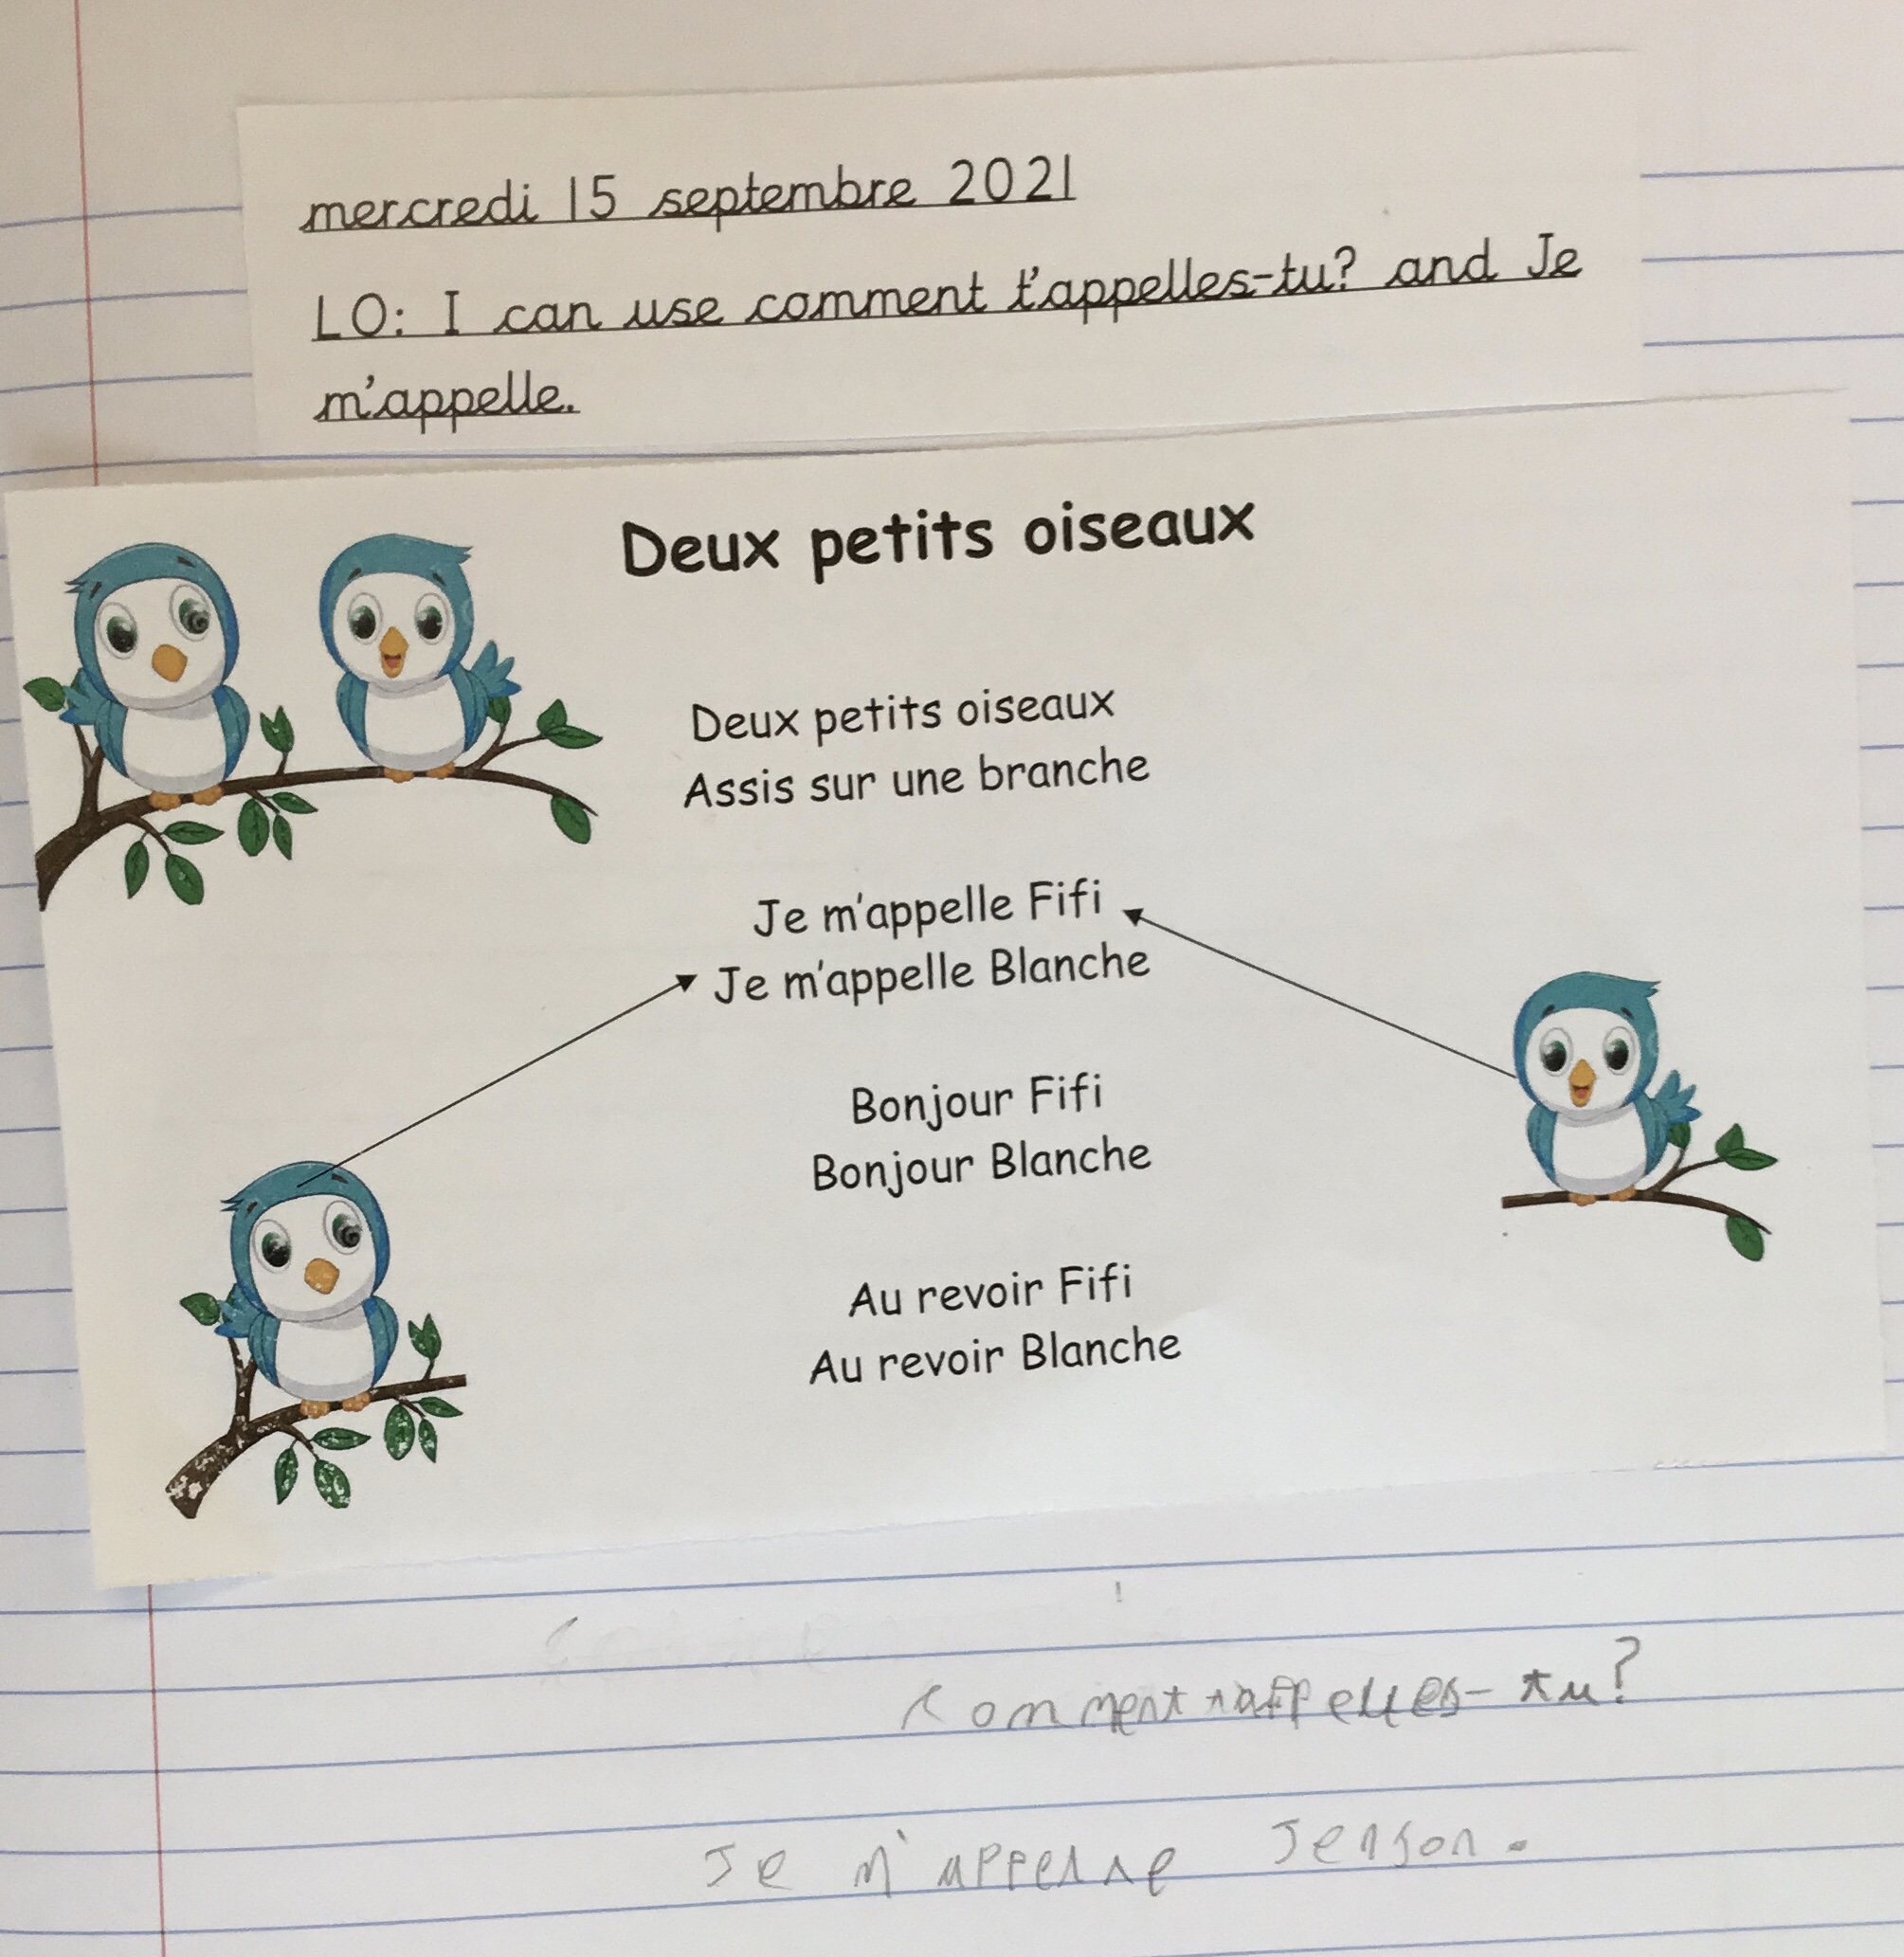 mercredi 15 septembre 2021
LO: I can use comment t'appelles-tu? and Je
m'appelle.
Deux petits oiseaux
Deux petits oiseaux
Assis sur une branche
Je m'appelle Fifi
Je m'appelle Blanche
Bonjour Fifi
Bonjour Blanche
Au revoir Fifi
Au revoir Blanche
comment tappelles-tu?
Je m'appelle Jenson.